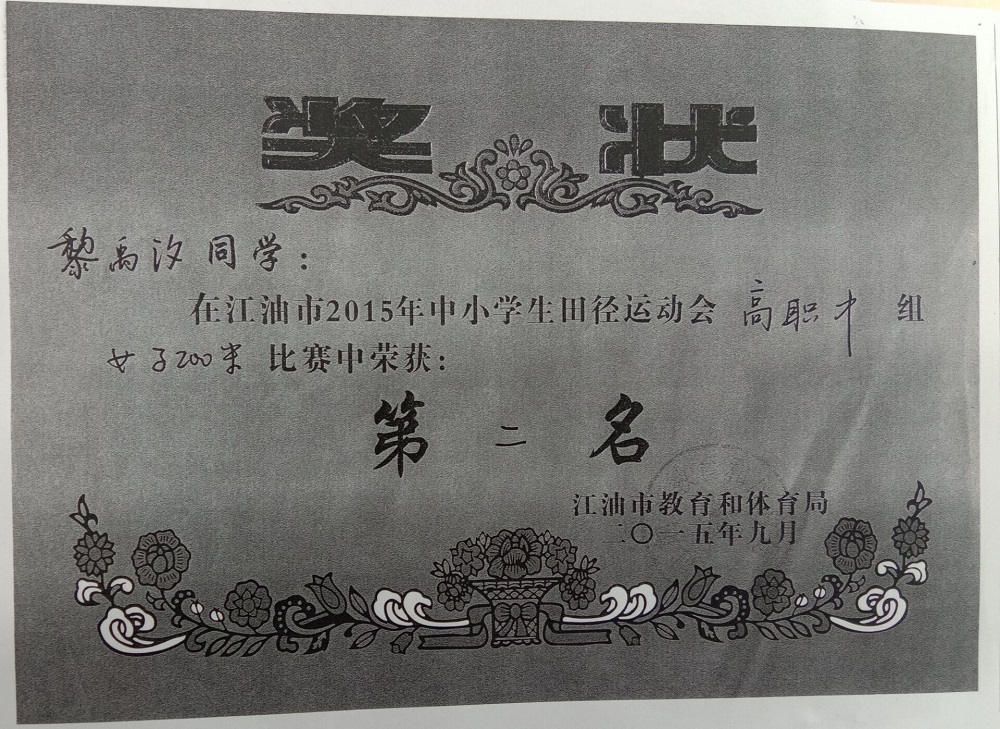 奖状
黎禹汐同学：
在江油市2015年中小学生田径运动会 高职中 组
女子200米 比赛中荣获：
第二名
江油市教育和体育局
二〇一五年九月